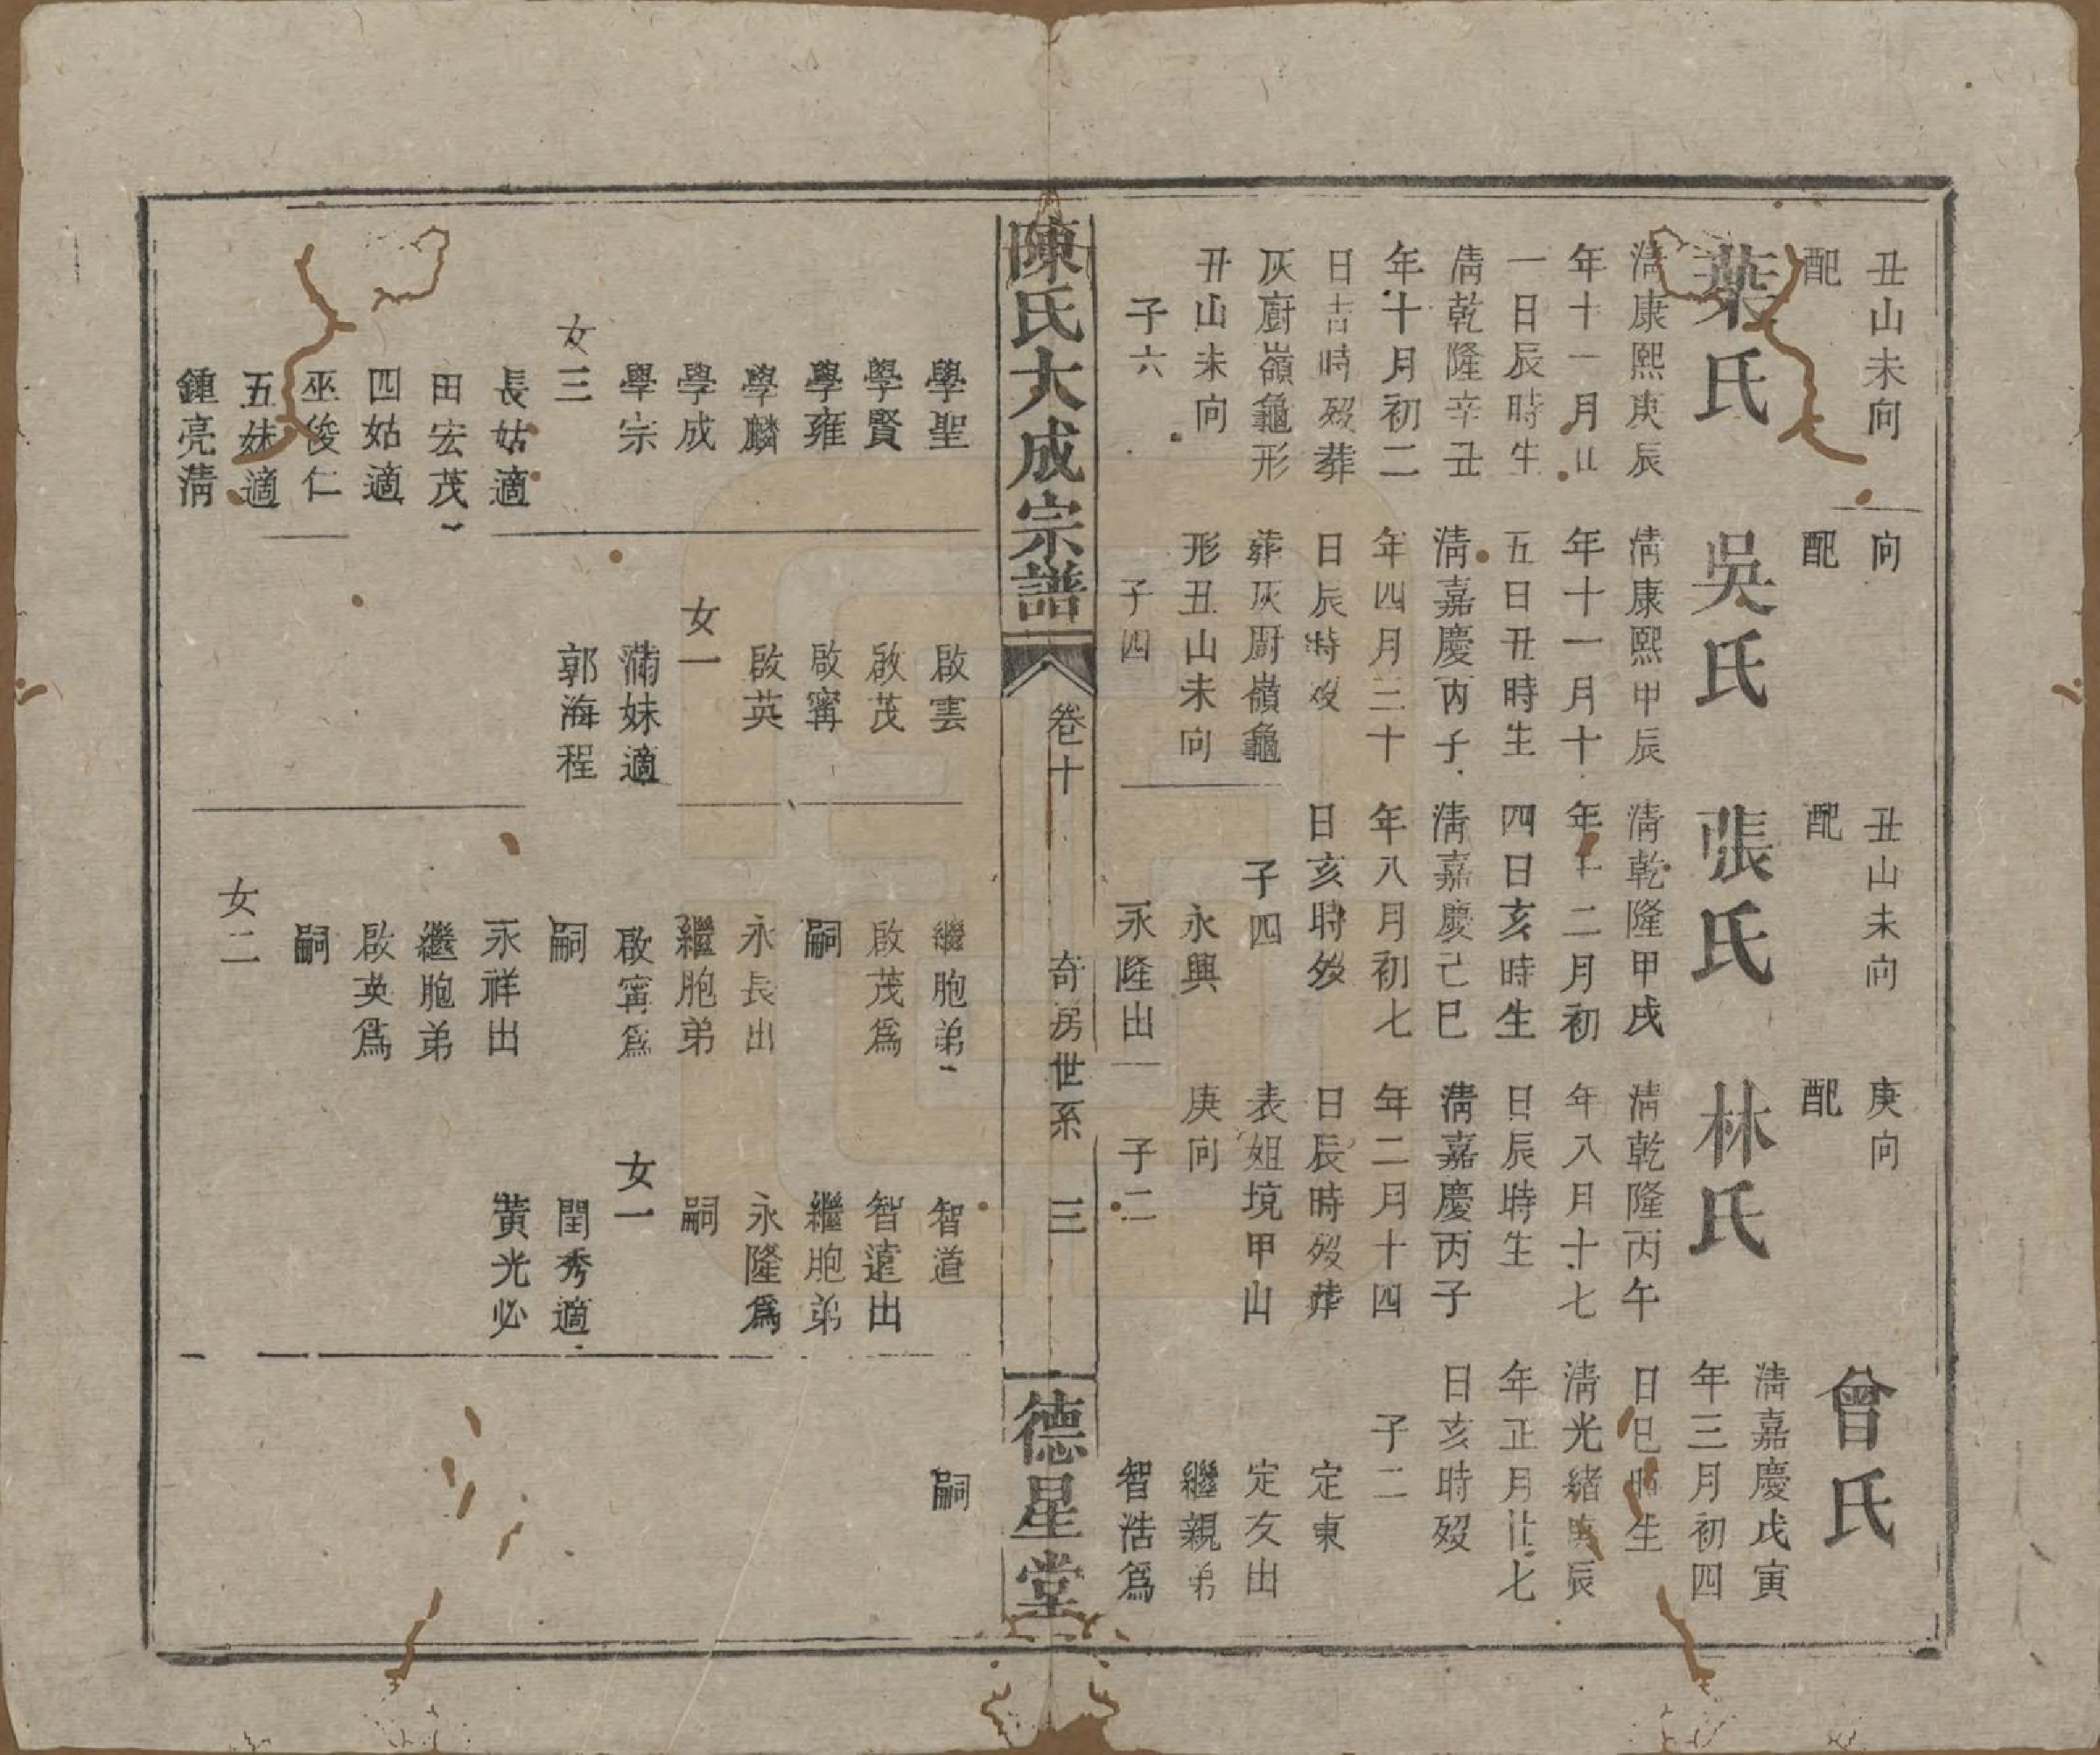 丑山未向
配
葉氏
清康熙庚辰
年十一月廿
一日辰時生
清乾隆辛丑
年十月初二
日吉時歿葬
灰廚嶺龜形
丑山未向
子六
向
配
吳氏
清康熙甲辰
年十一月十
五日丑時生
清嘉慶丙子
年四月三十
日辰時歿
葬灰廚嶺龜
形丑山未向
子四
丑山未向
配
張氏
清乾隆甲戌
年十二月初
四日亥時生
清嘉慶己巳
年八月初七
日亥時歿
子四
永興
永隆出
庚向
配
林氏
清乾隆丙午
年八月十七
日辰時生
清嘉慶丙子
年二月十四
日辰時歿葬
表姐境甲山
庚向
子二
曾氏
清嘉慶戊寅
年三月初四
日巳時生
清光緒庚辰
年正月廿七
日亥時歿
子二
定東
定友出
繼親弟
智浩爲
陳氏大成宗譜
卷十
奇房世系
三
德星堂
學聖
學賢
學雍
學麟
學成
學宗
女三
長姑適
田宏茂
四姑適
巫俊仁
五妹適
鍾亮清
啟雲
啟茂
啟甯
啟英
女一
滿妹適
郭海程
繼胞弟
啟茂爲
嗣
永長出
繼胞弟
啟甯爲
嗣
永祥出
繼胞弟
啟英爲
嗣
女二
智道
智遠出
繼胞弟
永隆爲
嗣
女一
閏秀適
黃光必
嗣